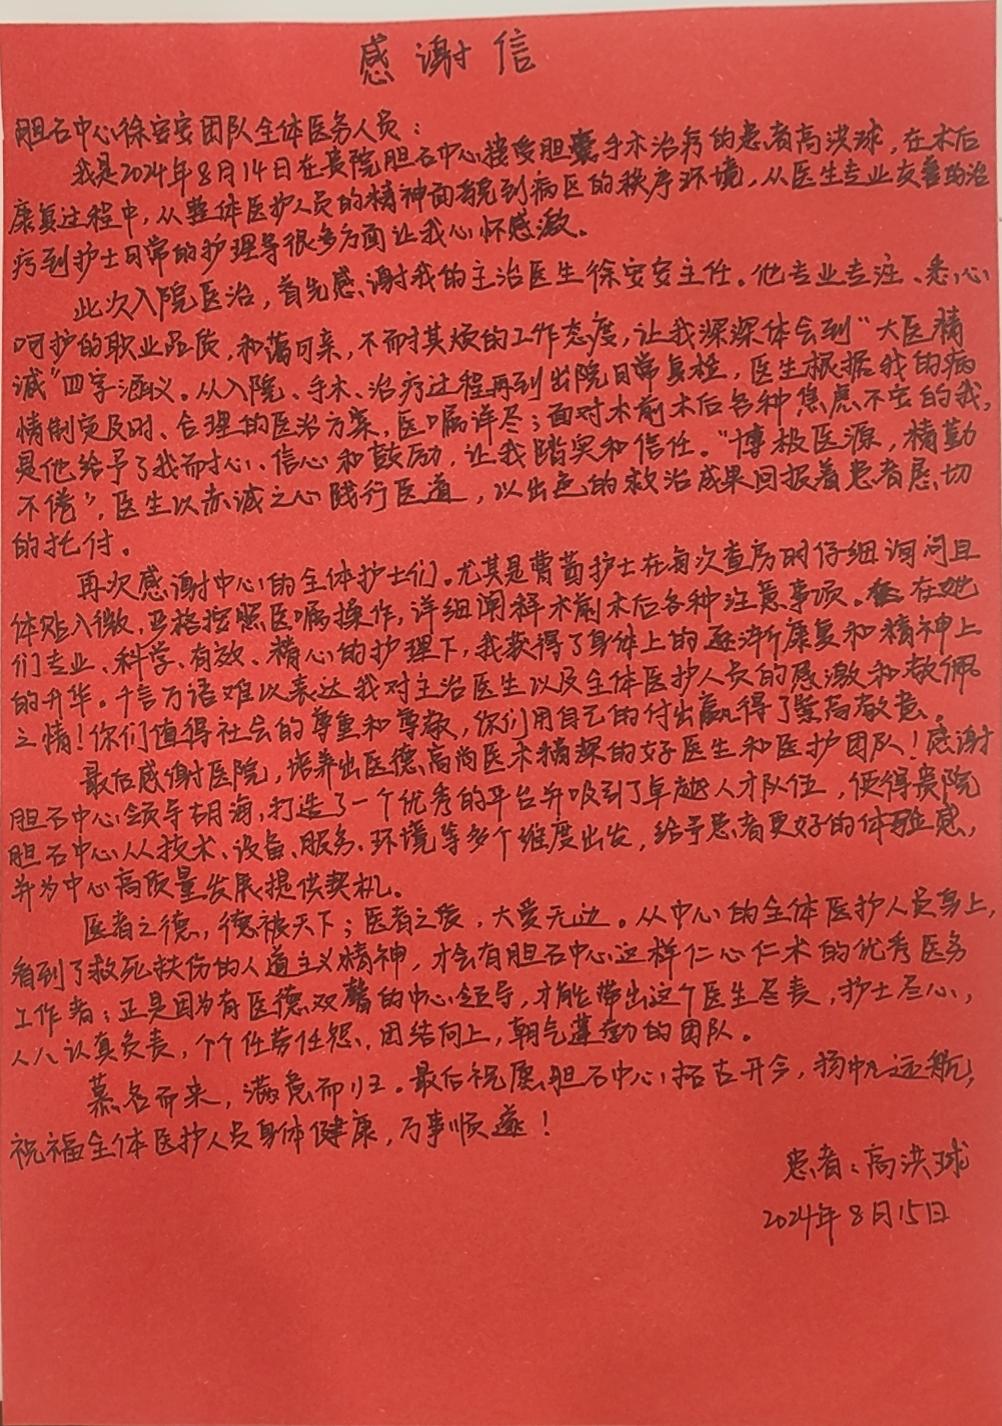 感谢信
胆石中心徐安安团队全体医务人员:
我是2024年8月14日在贵院胆石中心接受胆囊手术治疗的患者高洪球,在术后
康复过程中,从整体医护人员的精神面貌到病区的秩序环境,从医生专业友善的治
疗到护士日常的护理等很多方面让我心怀感激。
此次入院医治,首先感谢我的主治医生徐安安主任。他专业专注、悉心
呵护的职业品质,和蔼可亲,不耐其烦的工作态度,让我深深体会到“大医精
诚”四字涵义。从入院、手术、治疗过程再到出院日常复检,医生根据我的病
情制定及时、合理的医治方案,医嘱详尽;面对术前术后各种焦虑不安的我,
是他给予了我耐心、信心和鼓励,让我踏实和信任。“博极医源,精勤
不倦”,医生以赤诚之心践行医道,以出色的救治成果回报着患者恳切
的托付。
再次感谢中心的全体护士们。尤其是曹茵护士在每次查房时仔细询问且
体贴入微,严格按照医嘱操作,详细阐释术前术后各种注意事项。在她
们专业、科学、有效、精心的护理下,我获得了身体上的逐渐康复和精神上
的升华。千言万语难以表达我对主治医生以及全体医护人员的感激和敬佩
之情!你们值得社会的尊重和尊敬,你们用自己的付出赢得了崇高敬意。
最后感谢医院,培养出医德高尚医术精深的好医生和医护团队!感谢
胆石中心领导胡海,打造了一个优秀的平台并吸到了卓越人才队伍,使得贵院
胆石中心从技术、设备、服务、环境等多个维度出发,给予患者更好的体验感,
并为中心高质量发展提供契机。
医者之德,德被天下;医者之爱,大爱无边。从中心的全体医护人员身上,
看到了救死扶伤的人道主义精神,才会有胆石中心这样仁心仁术的优秀医务
工作者;正是因为有医德双馨的中心领导,才能带出这个医生尽责,护士尽心,
人人认真负责,个个任劳任怨,团结向上,朝气蓬勃的团队。
慕名而来,满意而归。最后祝愿胆石中心拓古开今,扬帆远航,
祝福全体医护人员身体健康,万事顺遂!
患者:高洪球
2024年8月15日